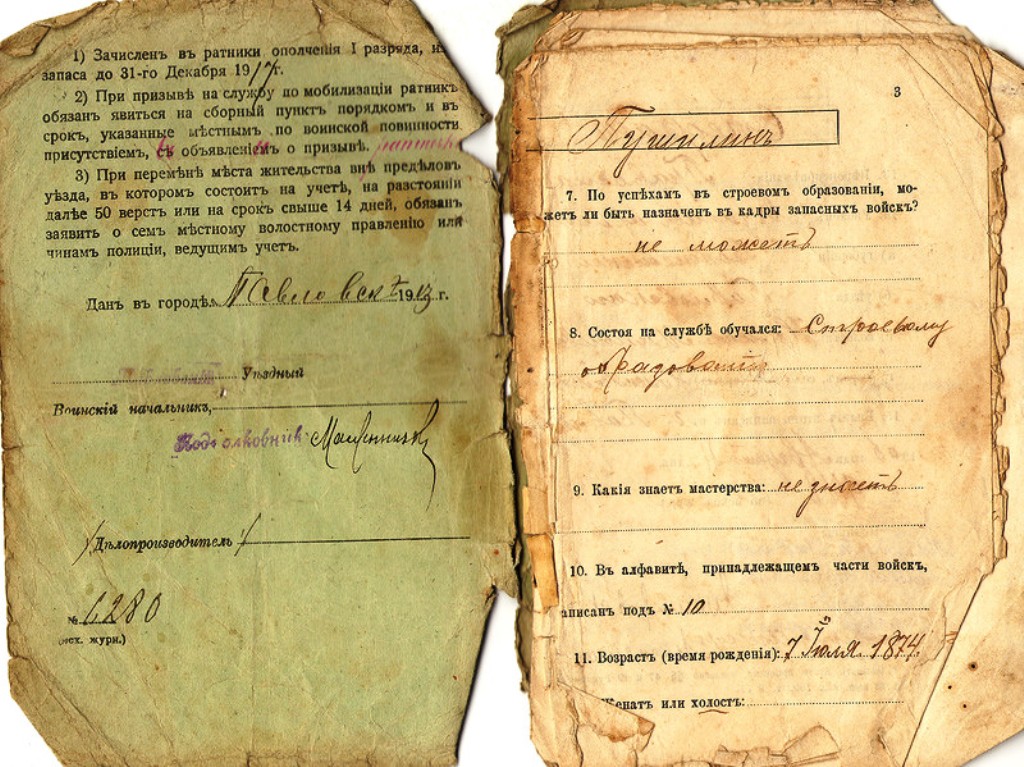 1) Зачисленъ въ ратники ополченія I разряда, из
запаса до 31-го Декабря 1917г.
2) При призывѣ на службу по мобилизаціи ратник
обязан явиться на сборный пунктъ порядкомъ и въ
срокъ, указанные мѣстнымъ по воинской повинности
присутствіем, съ объявленіемъ о призывѣ.
3) При перемѣнѣ мѣста жительства внѣ предѣловъ
уѣзда, въ котором состоитъ на учетѣ, на разстояніи
далѣе 50 верстъ или на срокъ свыше 14 дней, обязанъ
заявить о семъ мѣстному волостному правленію или
чинамъ полиціи, ведущимъ учетъ.
Данъ въ городѣ Павловскѣ 1913 г.
Уѣздный
Воинскій начальникъ,
Подполковникъ
Дѣлопроизводитель
№ 6280
(исх. журн.)
3
Пушилинъ
7. По успѣхамъ въ строевомъ образованіи, мо-
жетъ ли быть назначенъ въ кадры запасныхъ войскъ?
не можетъ
8. Состоя на службѣ обучался: Строевому
образованію
9. Какія знаетъ мастерства: не знаетъ
10. Въ алфавитѣ, принадлежащемъ части войскъ,
записанъ подъ № 10
11. Возрастъ (время рожденія): 7 Іюля 1874
Женатъ или холостъ: